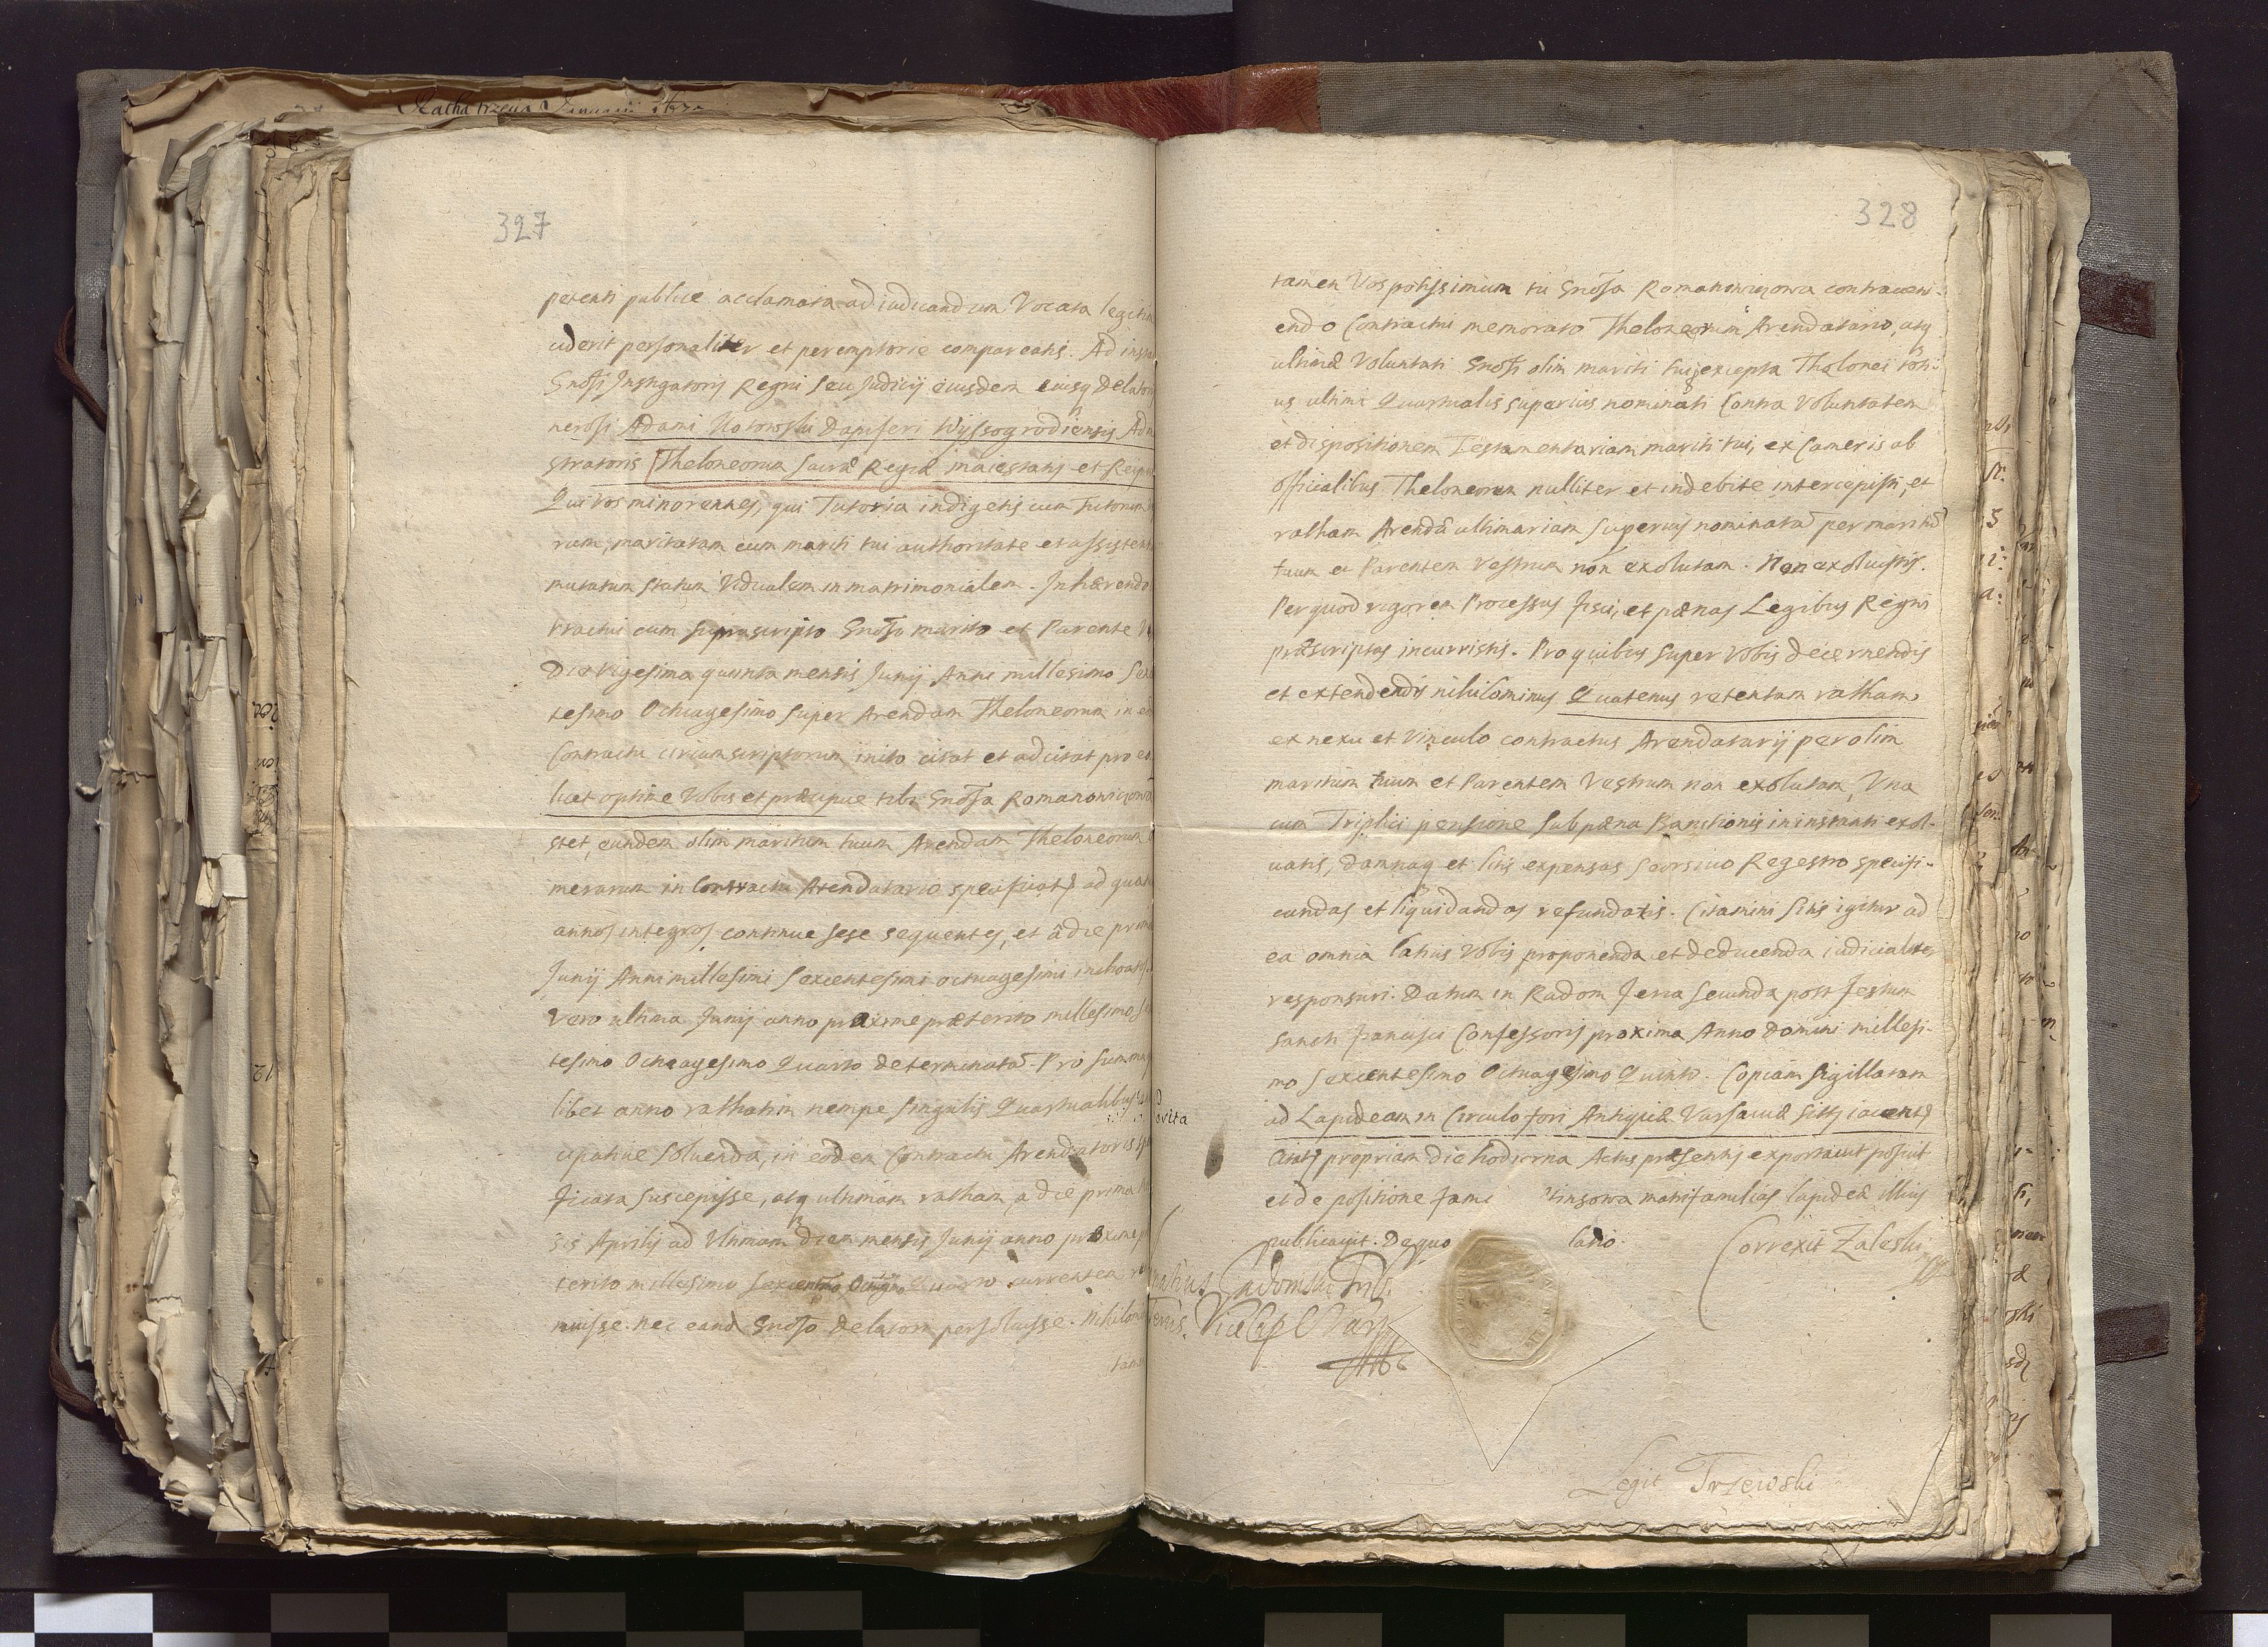 Ratha trzecia Januarii
327
petenti publice acclamata ad iudicandum Vocata legitim
uderit personaliter et peremptorie compareatis. Ad insta
Gnosi Instigatoris Regni seu Judicij eiusdem eiusq Delatoris
nerosi Adami Kotowski Dapiferi Wyssogrodiensis Admi
stratoris Theloneorum Sacræ Regiæ maiestatis et Reipu
Qui vos minorennes, qui Tutoria indigetis cum Tutorum
rum, maritatam cum mariti tui authoritate et assistent
mutatum statum Vidualem in matrimonialem. Inhærendo
tractui cum suprascripto Gnoso marito et Parente V
Die Vigesima quinta mensis Junij Anni millesimo Sex
tesimo Octuagesimo super Arendam Theloneorum in eo
Contractu circumscriptorum inito citat et adcitat pro eo
licet optime Vobis et præcipue tibi Gnosa Romanowiczowa
stet, eundem olim maritum tuum Arendam Theloneorum
merarum in Contractu Arendatario specificatæ ad quatu
annos integros continue sese sequentes, et à die prima
Junij Anni millesimi Sexcentesimi octuagesimi inchoatæ
vero ultima Junij anno proxime præterito millesimo Se
tesimo Octuagesimo Quarto determinatæ. Pro summa
libet anno rathatim nempe singulis Quartualibus
cipative soluenda, in eodem Contractu Arendatoris spe
ficata suscepisse, atq ultimam ratham a die prima
sis Aprilis ad Vltimam diem mensis Junij anno proxime p
terito millesimo sexcentmo Octuagmo Quarto currentem re
nuisse. nec eand Gnoso Delatori persoluisse. Nihilom
tam
328
tamen Vos potissimum tu Gnosa Romanowiczowa contraveni-
endo Contractui memorato Theloneorum Arendatario, atq
ultimæ Voluntati Gnosi olim mariti tui, excepta Tholonei toti-
us ultimi Quartualis superius nominati Contra Voluntatem
et dispositionem Testamentariam mariti tui, ex Cameris ab
officialibus Theloneorum nulliter et indebite intercepisti, et
ratham Arendæ ultimariam superius nominatā per maritū
tuum et Parentem Vestrum non exolutam. Non exoluistis.
Per quod rigorem Processus fisci, et pænas Legibus Regni
præscriptas incurristis. Pro quibus super Vobis decernendis
et extendendis nihilominus Quatenus retentam ratham
ex nexu et Vinculo contractus Arendatarij per olim
maritum tuum et Parentem Vestrum non exolutam, Vna
cum Triplici pensione sub pæna Bannitionis in instanti exol-
uatis, damnaq et litis expensas seorsivo Regestro specifi-
candas et liquidandas refundatis. Citamini sitis igitur ad
ea omnia latius Vobis proponenda et deducenda iudicialiter
responsuri. Datum in Radom feria secunda post festum
Sancti Francisci Confessoris proxima Anno Domini millesi-
mo sexcentesimo Octuagesimo Quinto. Copiam sigillatam
ad Lapideam in Circulo fori Antiquæ Varsaviæ sittj iacentē
Citatj propriam die hodierna Actus præsentis exportavit posuit
et de positione fami tinsowa matrifamilias lapideæ illius
publicavit. De quo latio.
Correxit Zaleski
mpp
Legit Trzewski